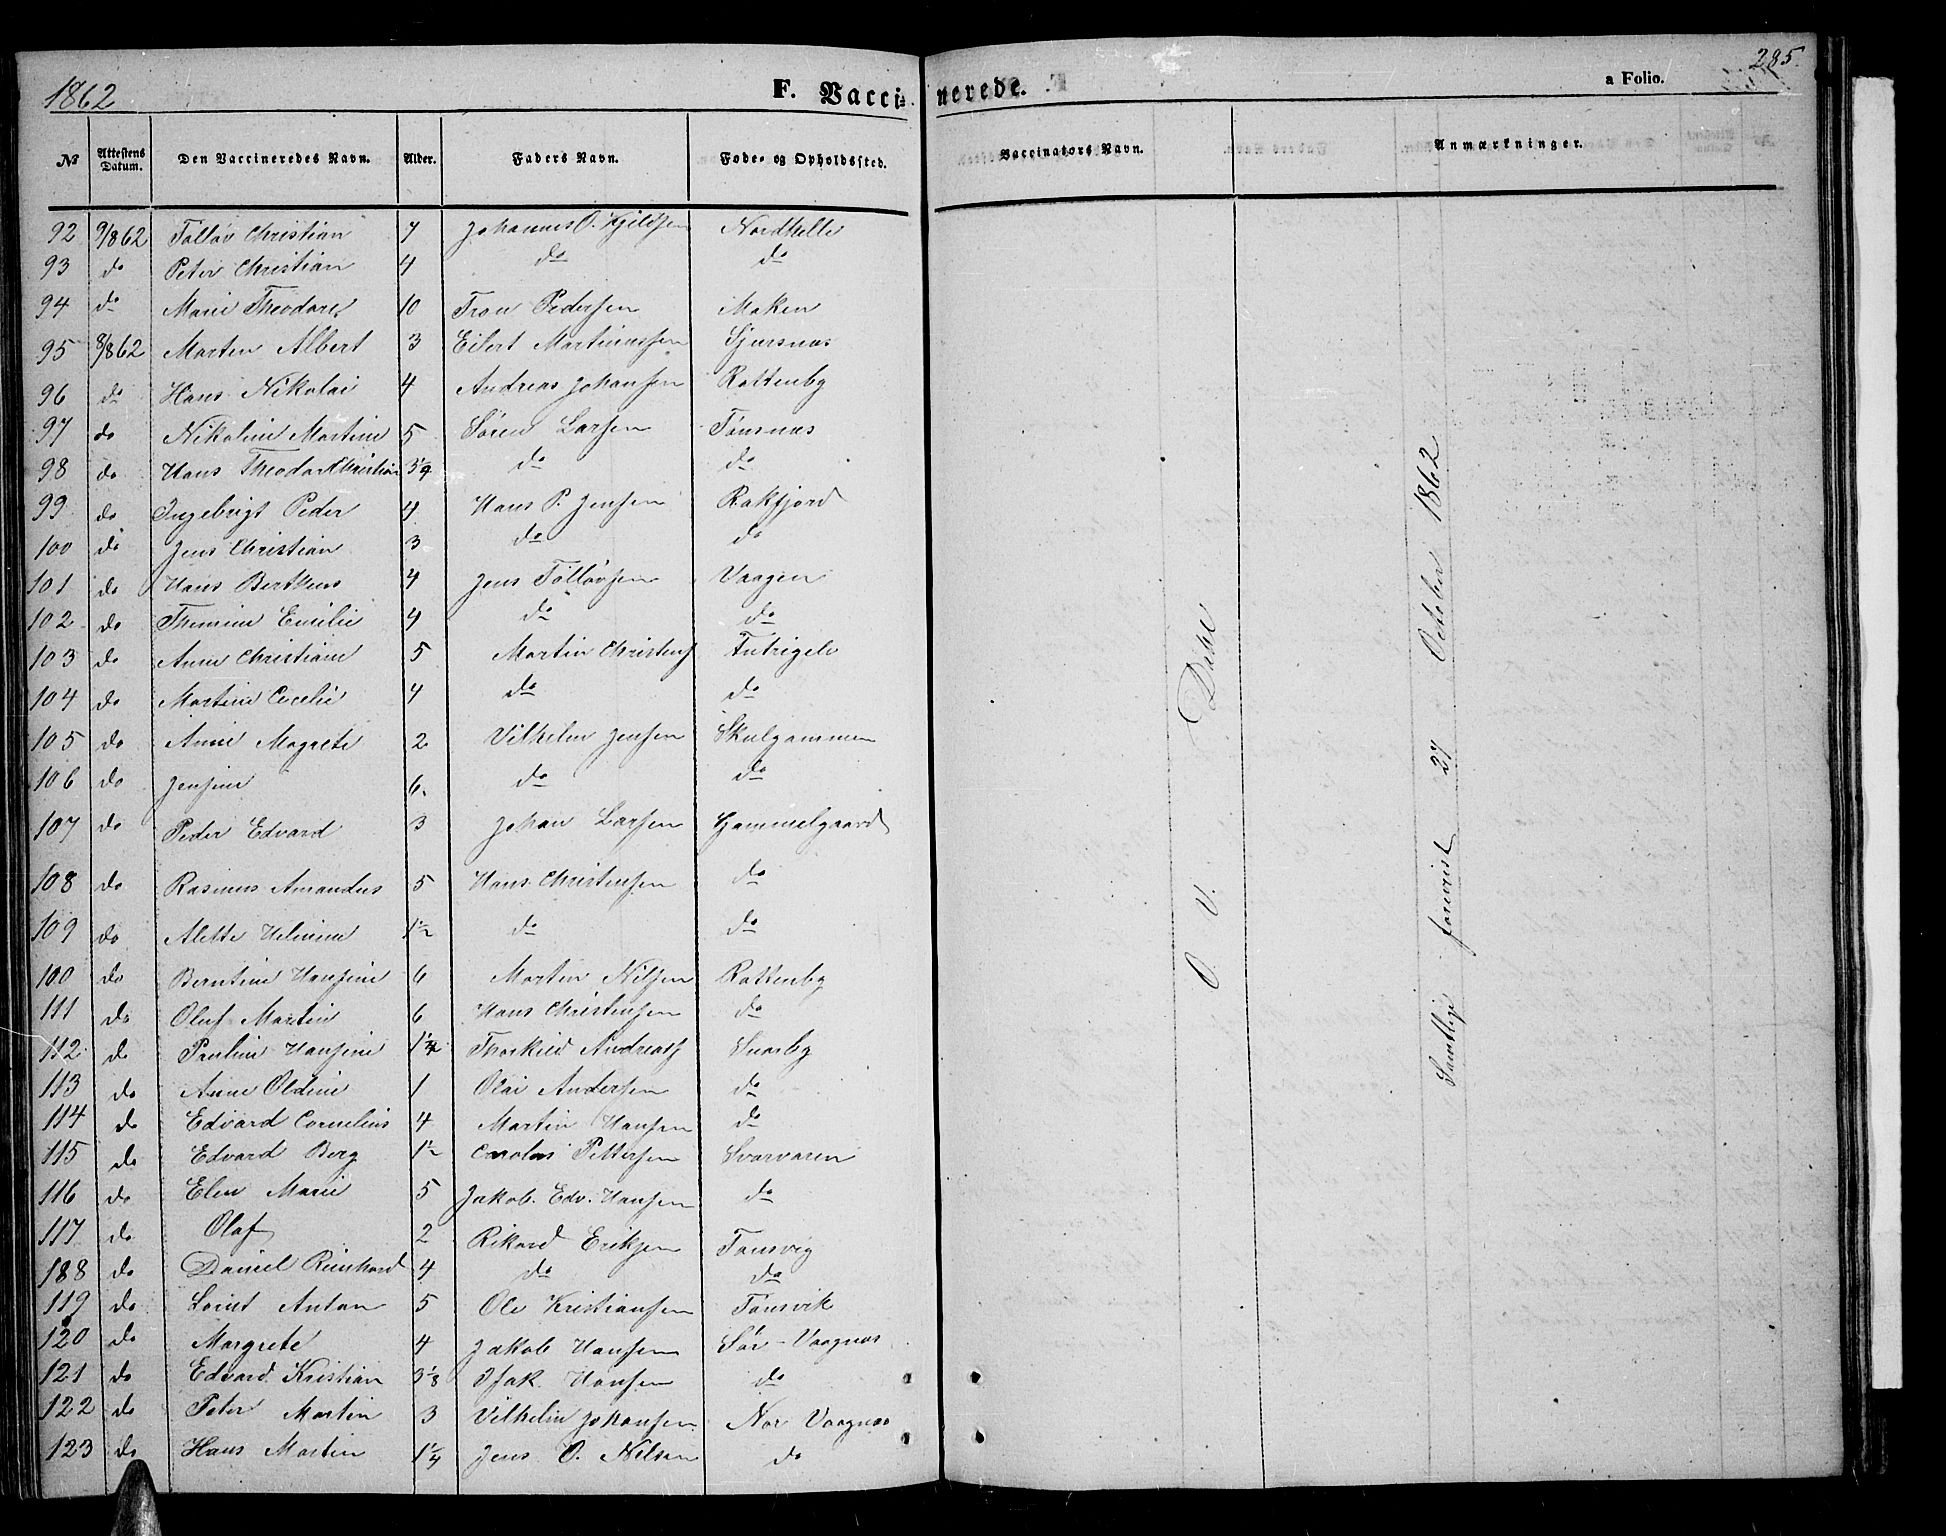 1862 F. Vaccinerede. a Folio. 285.
№ Attestens Datum. Den Vaccineredes Navn. Alder. Faders Navn. Føde- og Opholdssted. Vaccinators Navn. Anmærkninger.
92 9/862 Tølløv Christian 7 Johannes O. Kjildsen Nordkelle
93 do Peter Christian 4 do do
94 do Marie Theodore 10 Tron Pedersen Moken
95 8/862 Morten Albert 3 Eilert Martinussen Sjursnæs
96 do Hans Nikolai 4 Andreas Johansen Rottenby
97 do Nikoline Martine 5 Søren Larsen Tønsnæs
98 do Hans Theodor Christian do do
99 do Ingebrigt Peder 4 Hans P. Jensen Rakfjord
100 do Jens Christian 3 do do
101 do Hans Bertheus 4 Jens Tølløvsen Vaagen
102 do Emilie 4 do do
103 do Anne Christiane 5 Martin Christens Futrigelv
104 do Martine Cecelie 4 do do
105 do Anne Magrete 2 Vilhelm Jensen Skulgammen
106 do Jensine 6. do do
107 do Peder Edvard 3 Johan Larsen Gammelgaard
108 do Rasmus Amandus 5 Hans Christensen do
109 do Alette Helmine 1½ do do
100 do Berntine Hansine 6 Morten Nilsen Rottenby
111 do Oluf Martin 6 Hans Christensen do
112 do Pauline Hansine Thorkild Andreass Snarby
113 do Anne Oldine 1 Olai Andersen do
114 do Edvard Cornelius 4 Martin Hansen do
115 do Edvard Berg 1½ Carolus Pettersen Svarvaren
116 do Elen Marie 5 Jakob. Edv. Hansen do
117 do Olaf 2 Rikard Eriksen Tønsvig
188 do Daniel Reinhard 4 do do
119 do Anton 5 Ole Kristiansen Tønsvik
120 do Margrete 4 Jakob Hansen Sør-Vaagnæs
121 do Edvard Kristian Isak Hansen do
122 do Peter Martin 3 Vilhelm Johansen Nor Vaagnæs
123 do Hans Martin 1¼ Jens O. Nilsen do
O. V. Dahl
Samtlige forevist 27 October 1862